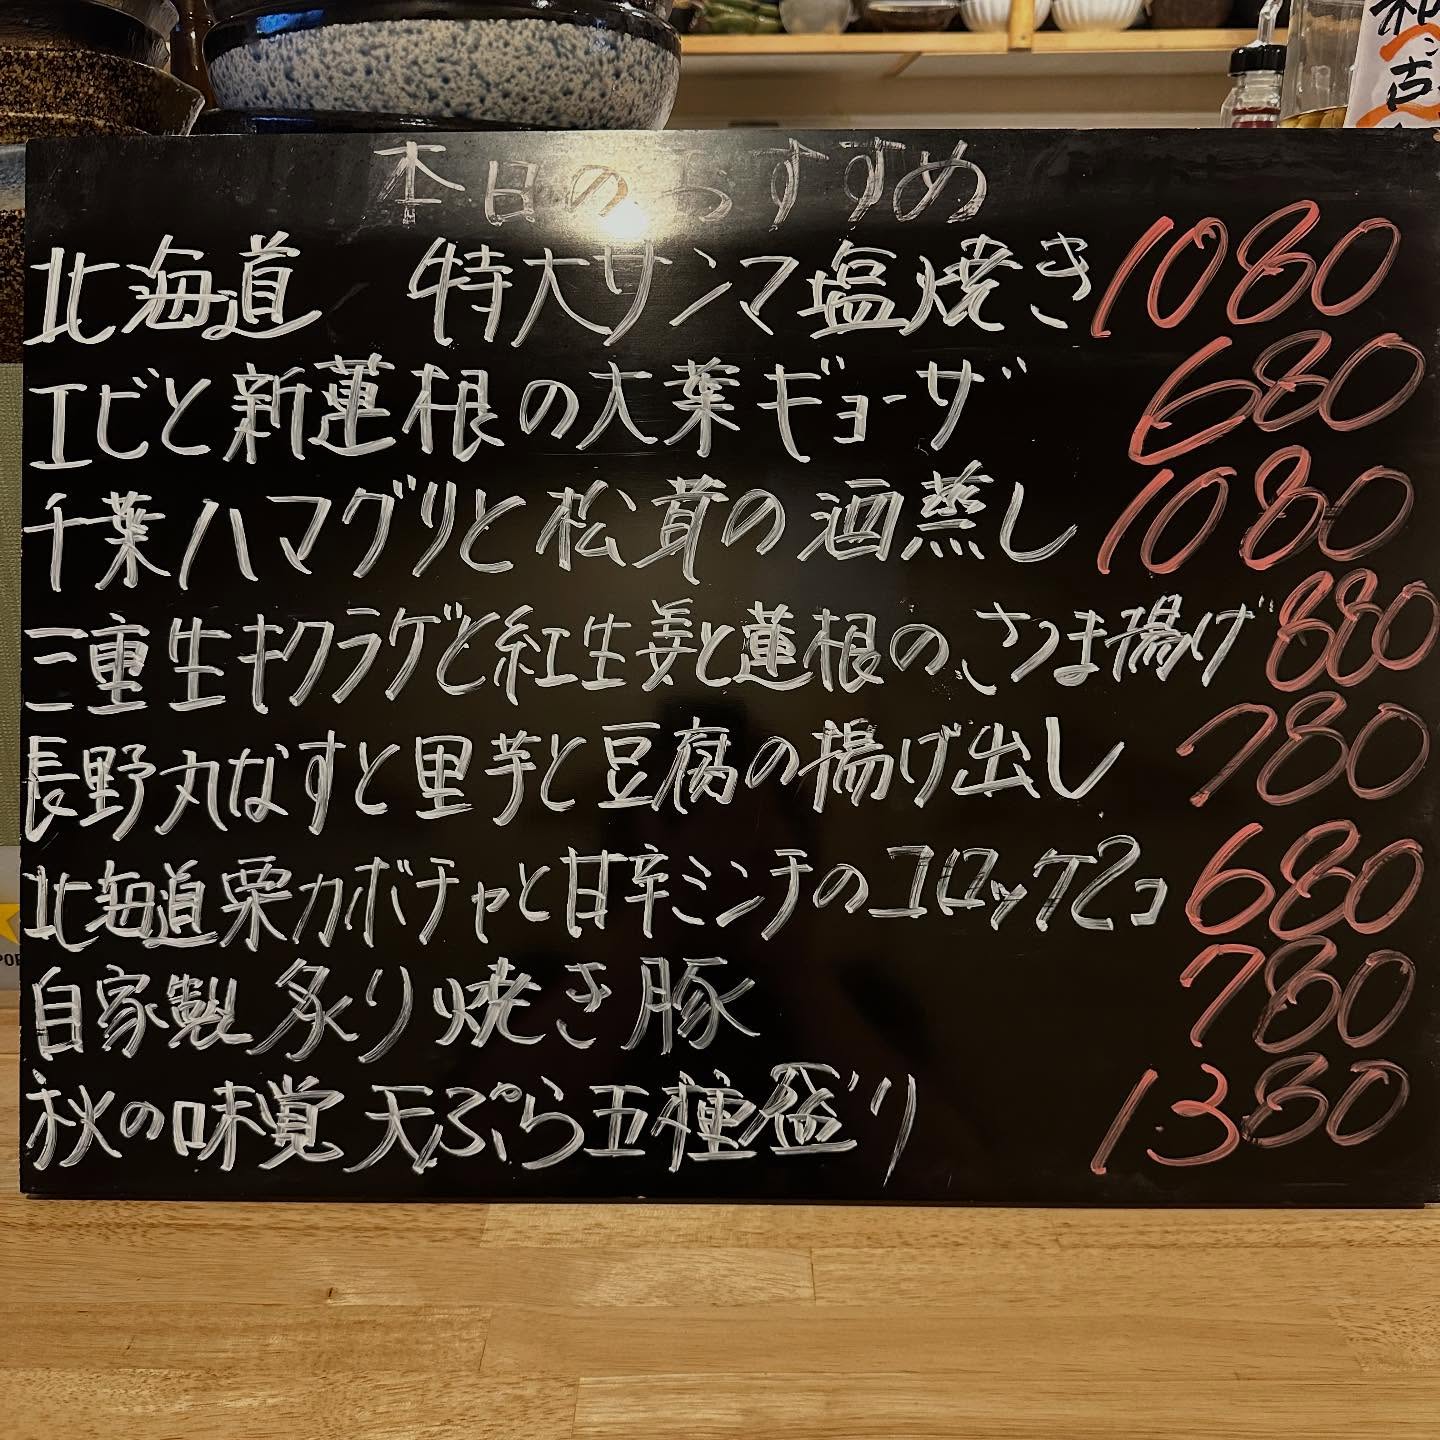 本日のおすすめ
北海道 特大サンマ塩焼き 1080
エビと新蓮根の大葉ギョーザ 680
千葉ハマグリと松茸の酒蒸し 1080
三重生キクラゲと紅生姜と蓮根のさつま揚げ 880
長野丸なすと里芋と豆腐の揚げ出し 780
北海道栗カボチャと甘辛ミンチのコロッケ2コ 680
自家製 炙り焼き豚 780
秋の味覚 天ぷら五種盛り 1380